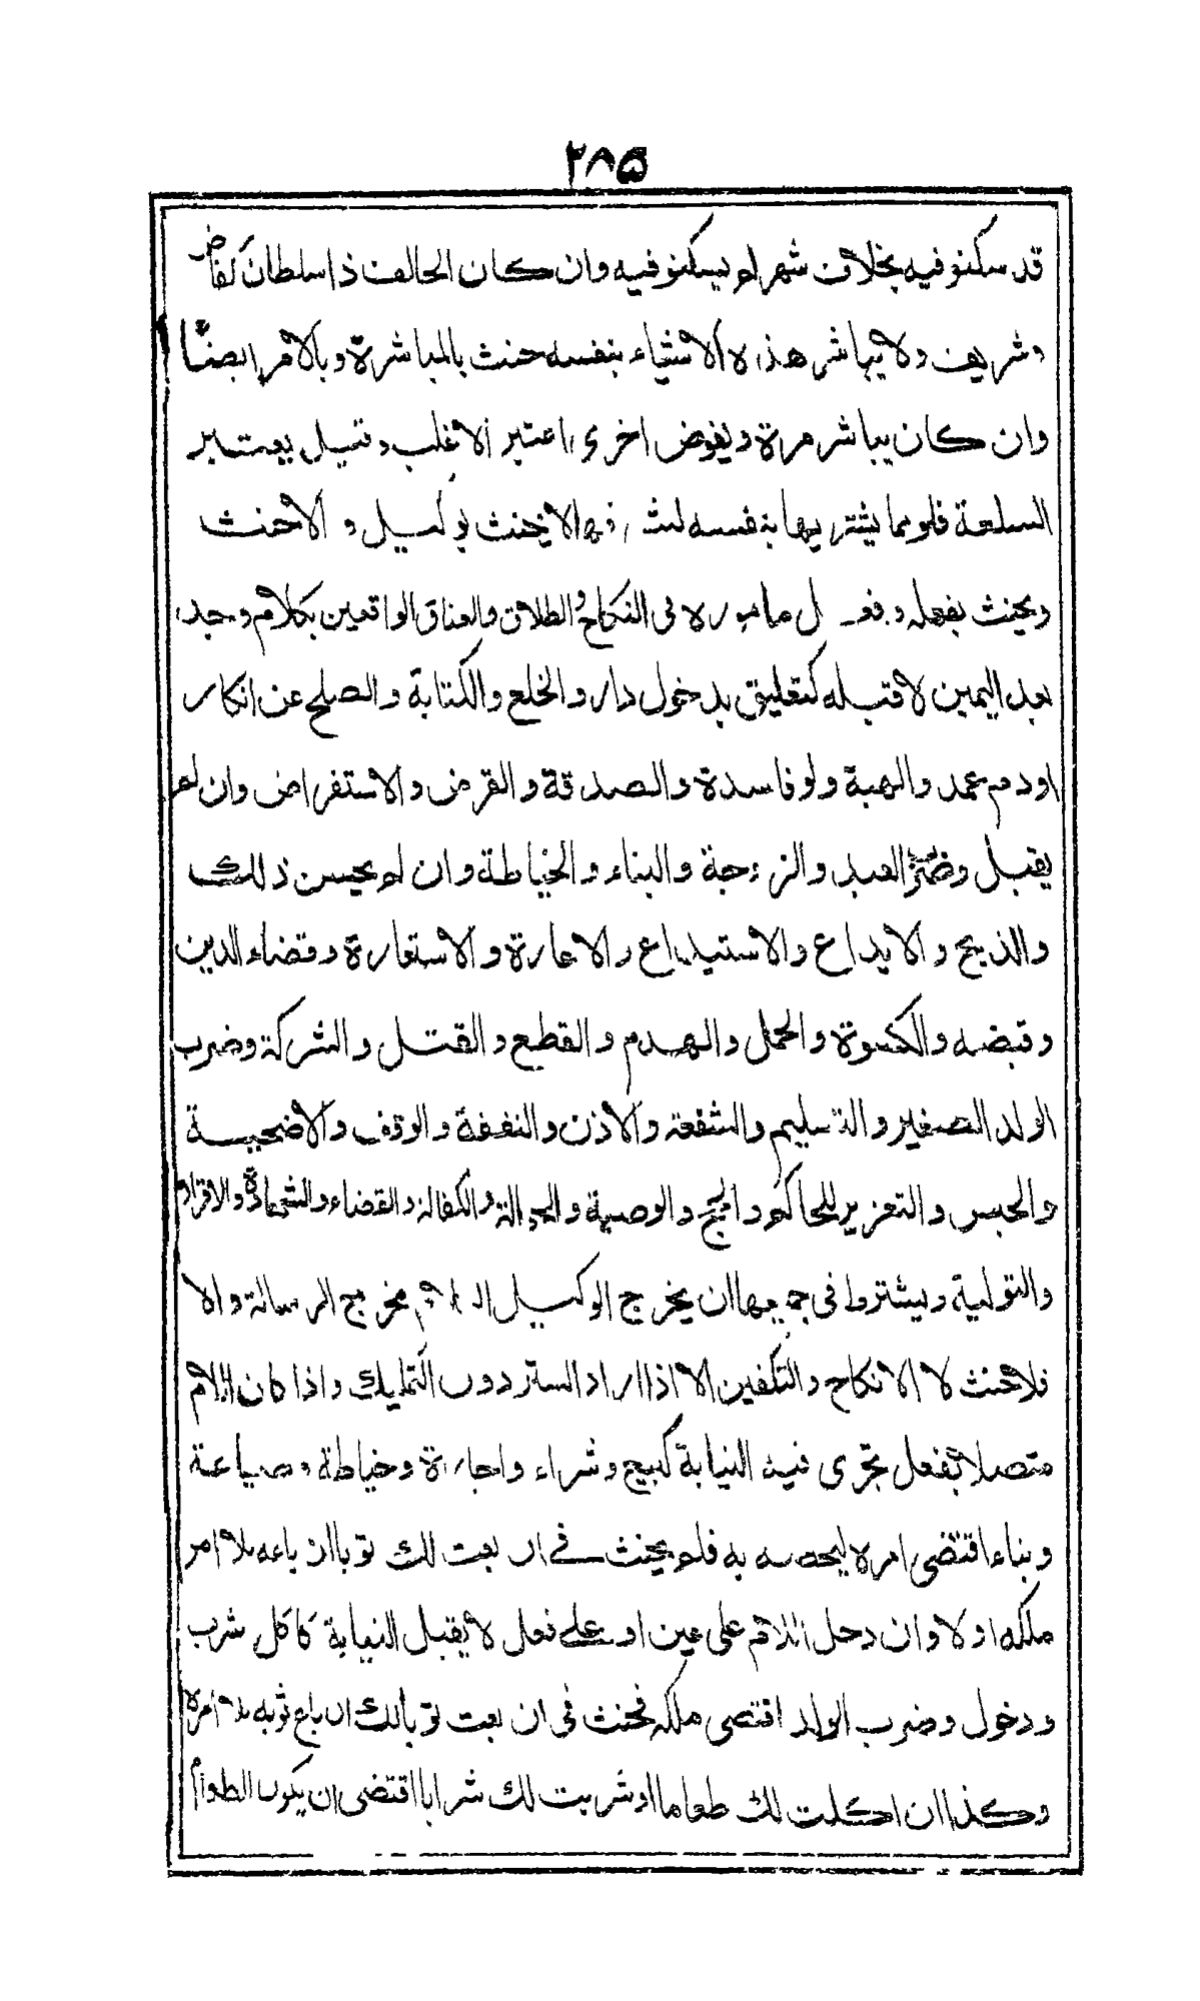 ٢٨٥
قد سكنو فيه بخلاف شهر لم يسكنو فيه وان كان الحالف ذا سلطان كقاض
وشريف ولا يباشر هذه الاشياء بنفسه حنث بالمباشرة وبالامر ايضا
وان كان يباشر مرة ويفوض اخرى اعتبر الاغلب وقيل يعتبر
السلعة فلو مما يشتريها بنفسه لشرفها لا يحنث بوكيل والا حنث
ويحنث بفعله وفعل ماموره فى النكاح والطلاق والعتاق الواقعين بكلام وجد
بعد اليمين لا قبله كتعليق بدخول دار والخلع والكتابة والصلح عن انكار
او دم عمد والهبة ولو فاسدة والصدقة والقرض والاستقراض وان لم
يقبل وضرب العبد والزوجة والبناء والخياطة وان لم يحسن ذلك
والذبح والايداع والاستيداع والاعارة والاستعارة وقضاء الدين
وقبضه والكسوة والحمل والهدم والقطع والقتل والشركة وضرب
الولد الصغير والتسليم والشفعة والاذن والنفقة والوقف والاضحية
والحبس والتعزير للحاكم والحج والوصية والحوالة والكفالة والقضاء والشهادة والاقرار
والتولية ويشترط فى جميعها ان يخرج الوكيل الكلام مخرج الرسالة والا
فلا حنث لا الانكاح والتكفين الا اذا اراد الستر دون التمليك واذا كان اللام
متصلا بفعل تجرى فيه النيابة كبيع وشراء واجارة وخياطة وصياغة
وبناء اقتضى امره ليخصه به فلم يحنث فى ان بعت لك ثوبا ان باعه بلا امر
ملكه اولا وان دخل اللام على عين او على فعل لا يقبل النيابة كاكل شرب
ودخول وضرب الولد اقتضى ملكه فحنث فى ان بعت ثوبا لك ان باع ثوبه بلا امره
وكذا ان اكلت لك طعاما او شربت لك شرابا اقتضى ان يكون الطعام